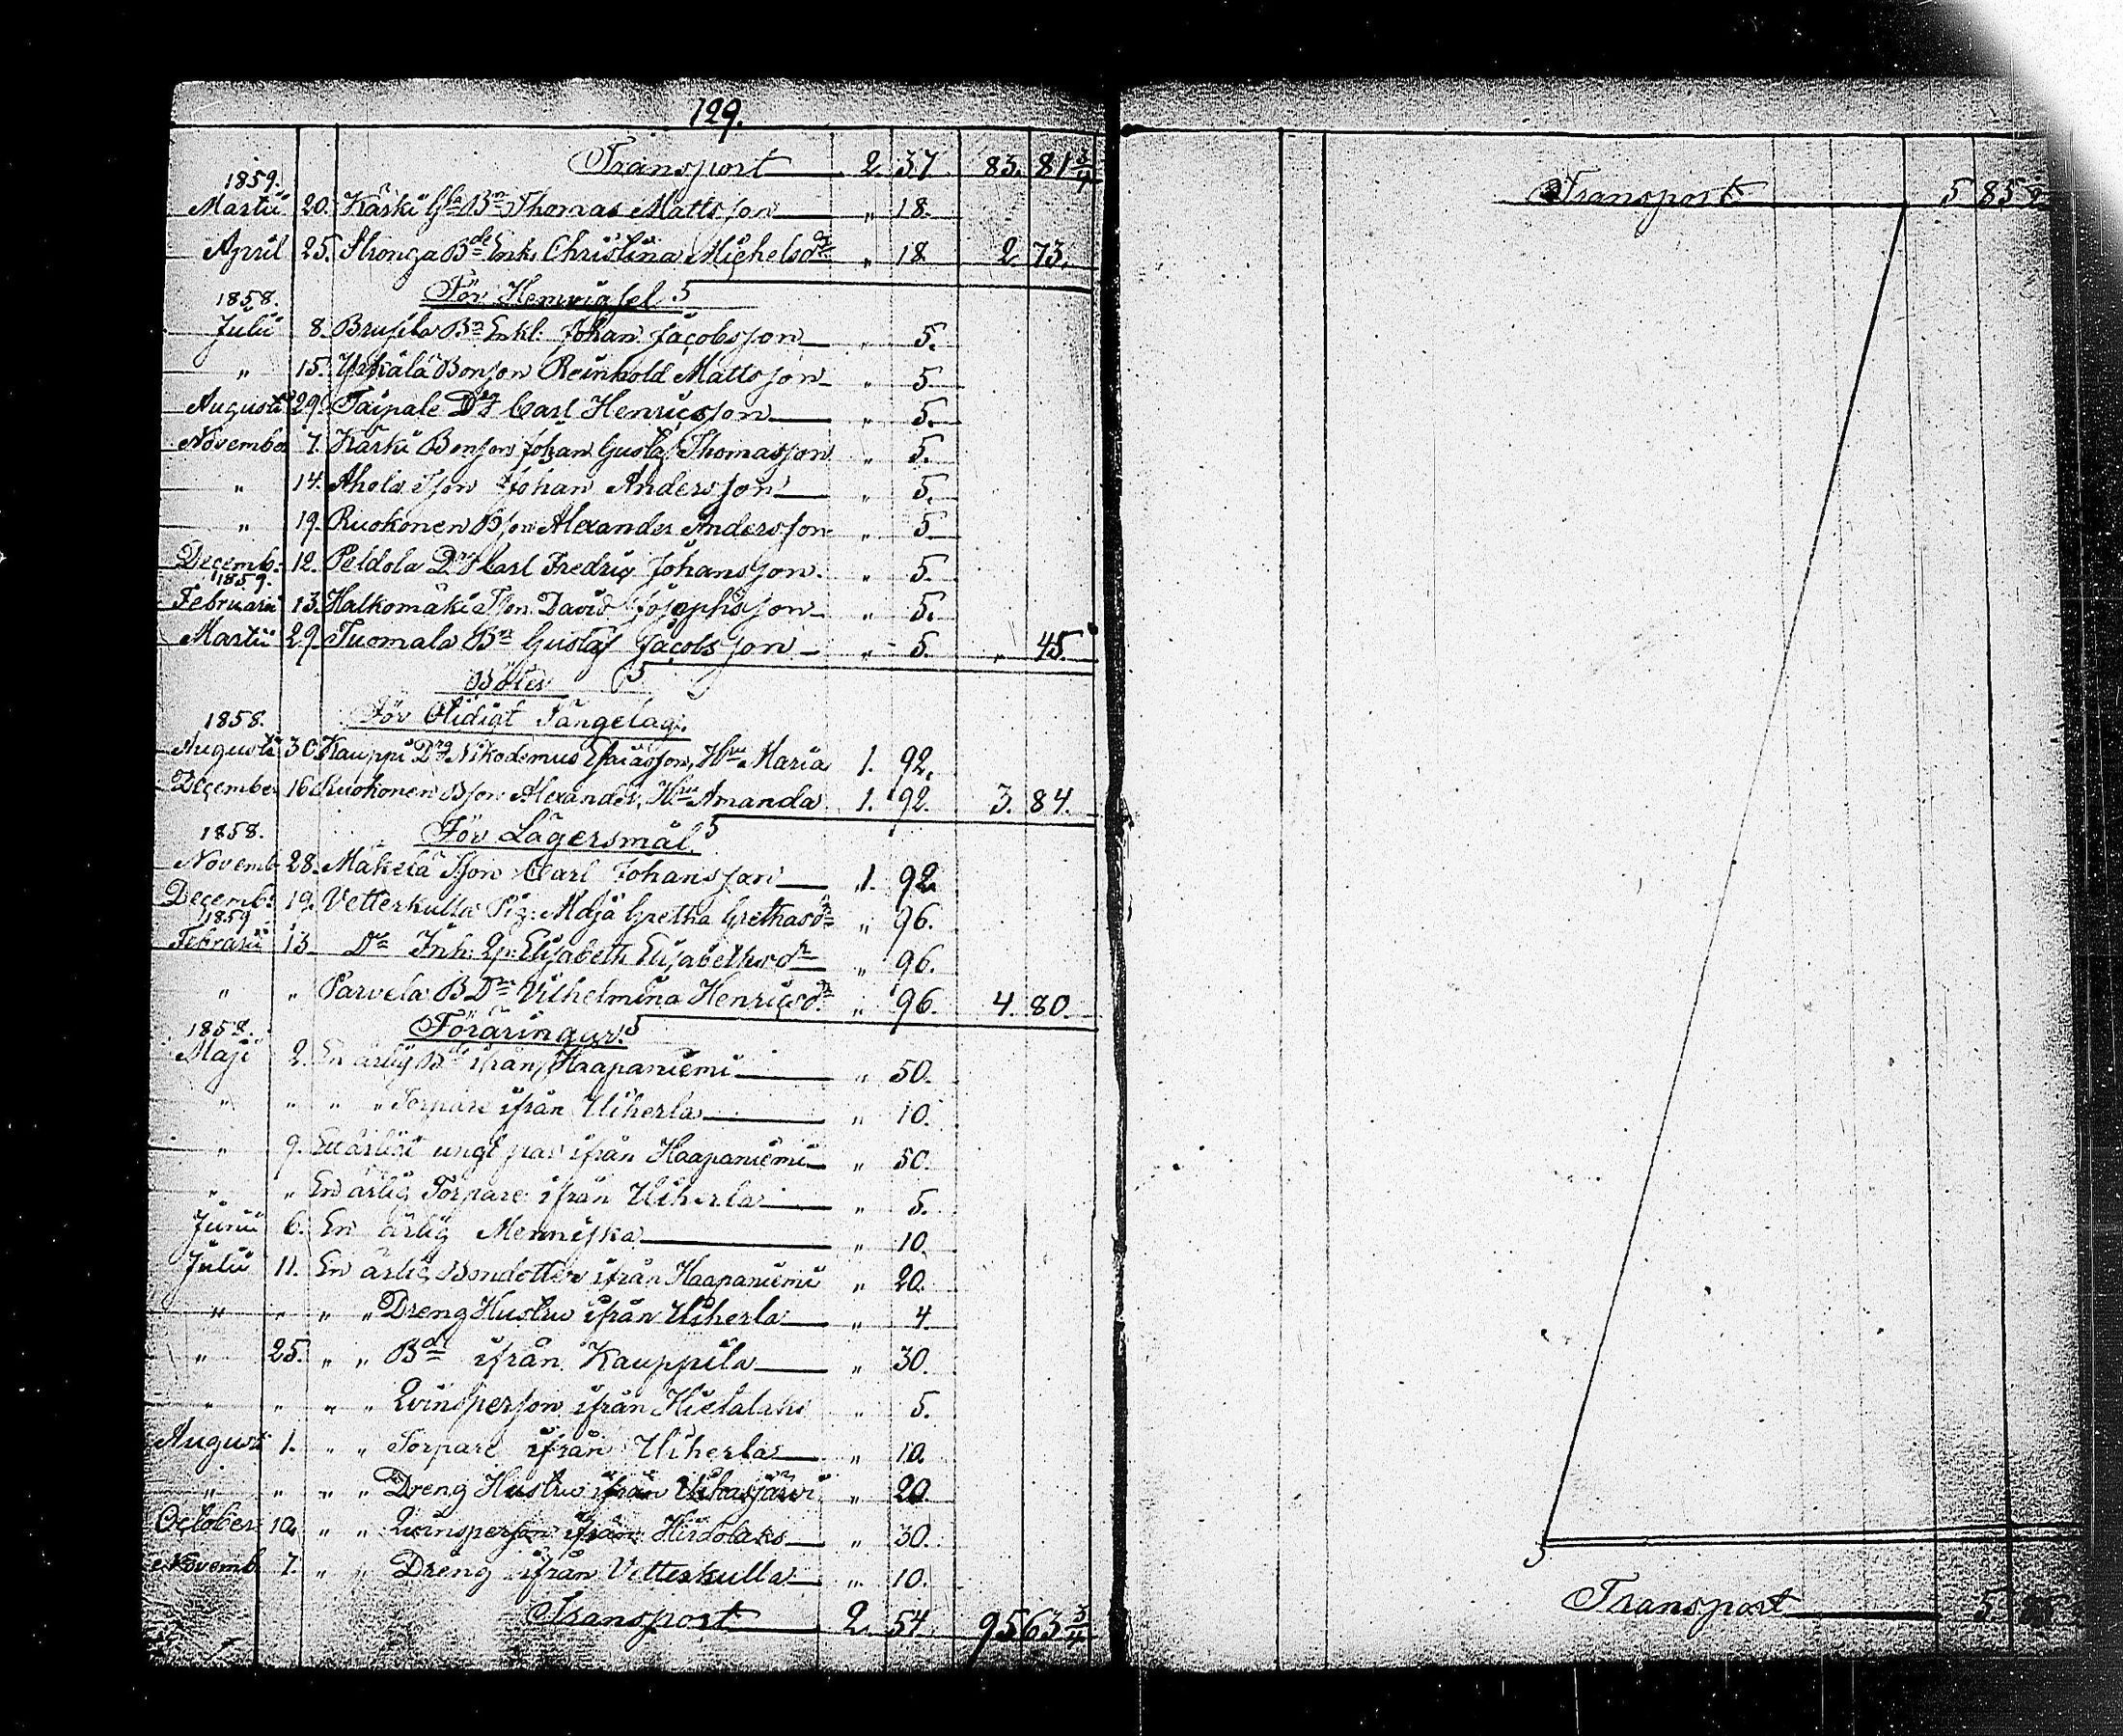 129.
Transport 2. 37 83. 81 3/4
1859.
Martii 20. Kärki Gla Bn Thomas Mattsson " 18.
April 25. Stronga Bde Enk. Christina Michelsdr " 18 2. 73.
1858. För Hemvigsel
Julii 8. Bn Enkl. Johan Jacobsson " 5.
" 15. Yrkälä Bonson Reinhold Mattsson " 5
Augusti 29. Taipale Dg Carl Henricsson " 5.
November 7. Kärki Bonson Johan Gustaf Thomasson " 5.
" 14. Ahola Tson Johan Andersson " 5.
" 19. Ruokonen Bson Alexander Andersson " 5
Decemb. 12. Peldola Dg Carl Fredric Johansson " 5.
1859.
Februarii 13. Halkomäki Tson David Josephsson " 5.
Martii 29. Tuomala Bn Gustaf Jacobsson " 5. " 45.
Böter
1858. För Otidigt Sängelag.
Augusti 30. Kauppi Dg Nikodemus Esaiasson, Hu Maria 1. 92.
December 16 Ruokonen Bson Alexander, Hu Amanda 1. 92. 3. 84.
1858. För Lägersmål
Novemb. 28. Mäkelä Sson Carl Johansson 1. 92.
Decemb. 19. Vetterkulla Pig. Maja Gretha Grethasdr " 96.
1859
Februarii 13. Do Inh. Qp. Elisabeth Elisabethsdr " 96.
" " Parvela B Dr Vilhelmina Henricsdr " 96. 4. 80.
1858. Föräringar.
Maji 2. En ärlig Bde ifrån Haapaniemi " 50.
" " " " Torpare ifrån Uiherla " 10.
" 9. Ett ärligt ungt par ifrån Haapaniemi " 50.
" " En ärlig Torpare ifrån Uiherla " 5.
Junii 6. En ärlig Menniska " 10.
Julii 11. En ärlig Bondotter ifrån Haapaniemi " 20.
" " " " Dreng Hustru ifrån Uiherla " 4
" 25. " " Bde ifrån Kauppila " 30.
" " " " Qvinsperson ifrån Hietalaks " 5.
Augusti 1. " " Torpare ifrån Uiherla " 10.
" " " " Dreng Hustru ifrån " 20.
October 10. " " Qvinsperson ifrån " 30.
Novemb. 7. " " Dreng ifrån Vetterkulla " 10.
Transport 2. 54. 95 63 3/4
Transport 5 85
Transport 5